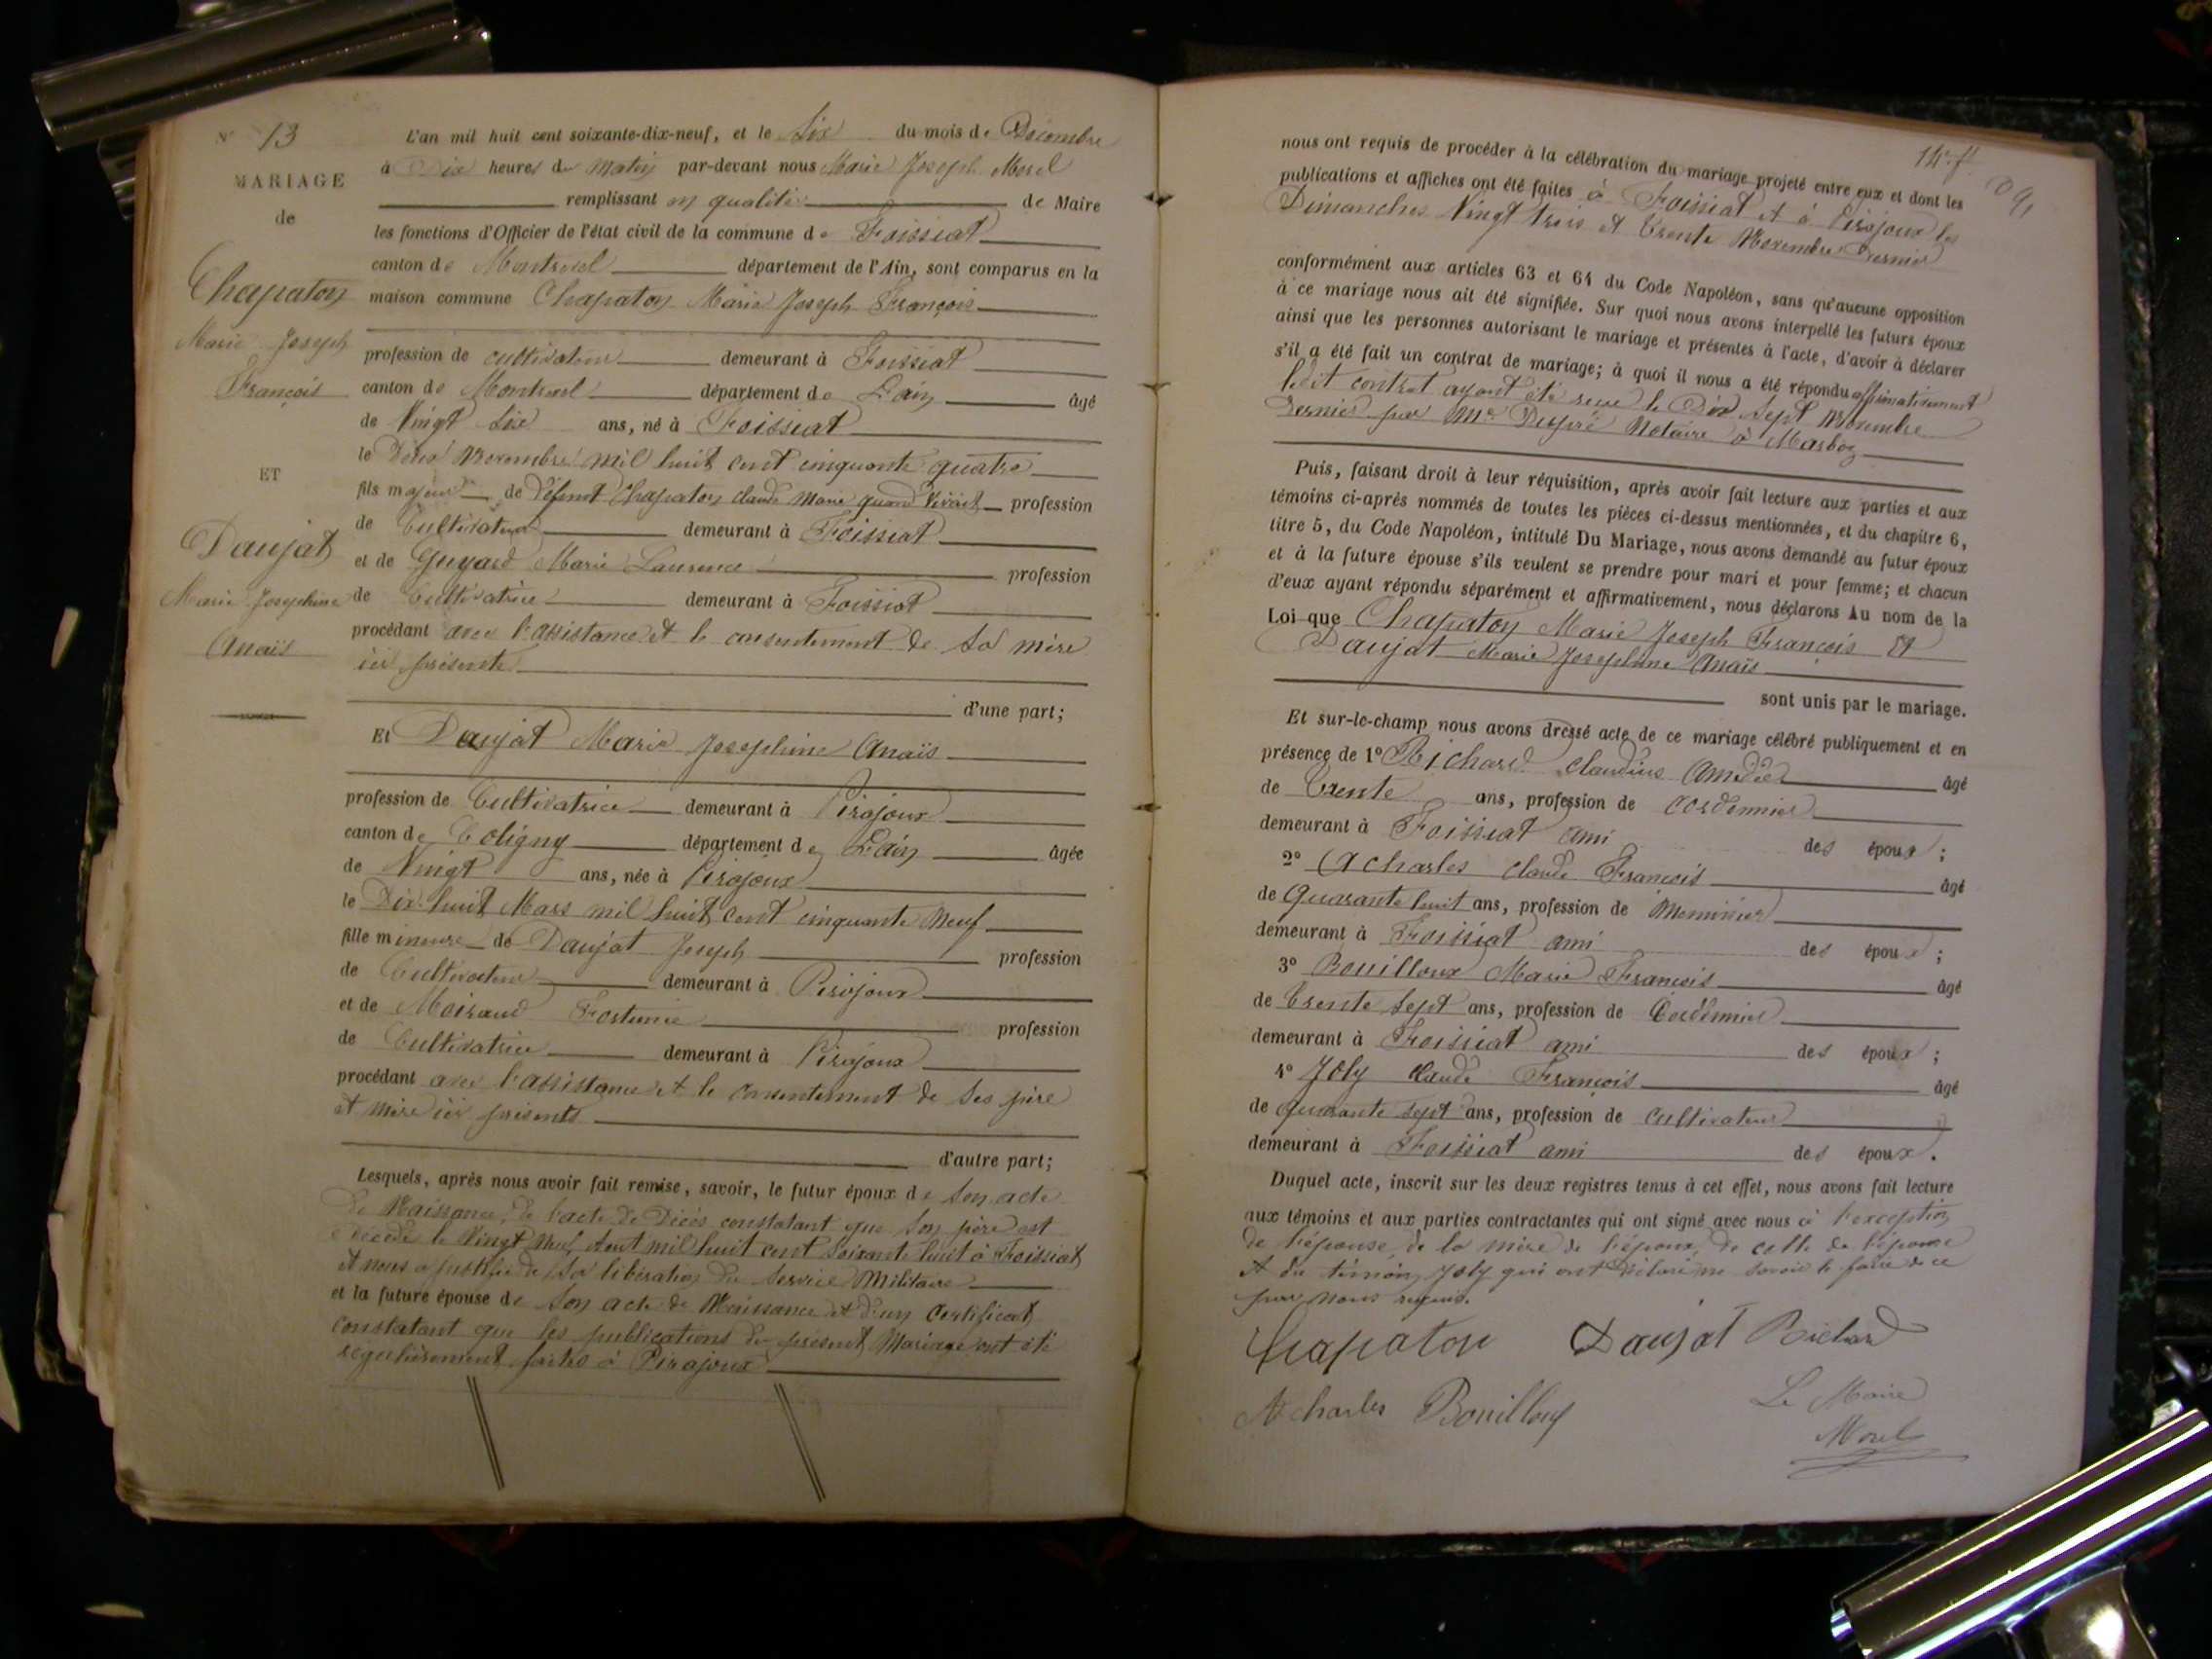 N° 13
MARIAGE
de
Chapaton
Marie Joseph
François
ET
Daujat
Marie Josephine
Anaïs
L'an mil huit cent soixante-dix-neuf, et le Six du mois de Décembre
à Dix heures du matin par-devant nous Marie Joseph Morel
remplissant en qualité de Maire
les fonctions d'Officier de l'état civil de la commune de Foissiat
canton de Montrevel département de l'Ain, sont comparus en la
maison commune Chapaton Marie Joseph François
profession de cultivateur demeurant à Foissiat
canton de Montrevel département de L'ain âgé
de Vingt Six ans, né à Foissiat
le Novembre mil huit cent cinquante quatre
fils majeur de défunt Chapaton claude Marie quand Vivait profession
de Cultivateur demeurant à Foissiat
et de Guyard Marie Laurence profession
de Cultivatrice demeurant à Foissiat
procédant avec l'assistance et le consentement de sa mère
ici présente
d'une part;
Et Daujat Marie Josephine Anaïs
profession de Cultivatrice demeurant à Pirajoux
canton de Coligny département de L'ain âgée
de Vingt ans, née à Pirajoux
le Dix huit Mars mil huit cent cinquante Neuf
fille mineure de Daujat Joseph profession
de Cultivateur demeurant à Pirajoux
et de Moiraud Fortunie profession
de Cultivatrice demeurant à Pirajoux
procédant avec l'assistance et le consentement de ses père
et mère ici présents
d'autre part;
Lesquels, après nous avoir fait remise, savoir, le futur époux de son acte
de Naissance, de l'acte de Décès constatant que son père est
décédé le Vingt Neuf Aout mil huit cent soixante huit à Foissiat
et nous a justifié de sa libération du service Militaire
et la future épouse de son acte de Naissance et d'un Certificat
constatant que les publications du présent Mariage ont été
regulièrement faites à Pirajoux
nous ont requis de procéder à la célébration du mariage projeté entre eux et dont les
publications et affiches ont été faites à Foissiat et à Pirajoux les
Dimanches Vingt trois et Trente Novembre Dernier
conformément aux articles 63 et 64 du Code Napoléon, sans qu'aucune opposition
à ce mariage nous ait été signifiée. Sur quoi nous avons interpellé les futurs époux
ainsi que les personnes autorisant le mariage et présentes à l'acte, d'avoir à déclarer
s'il a été fait un contrat de mariage; à quoi il nous a été répondu affirmativement
ledit contrat ayant été reçu le Dix Sept Novembre
Dernier par Me Notaire à Marboz
Puis, faisant droit à leur réquisition, après avoir fait lecture aux parties et aux
témoins ci-après nommés de toutes les pièces ci-dessus mentionnées, et du chapitre 6,
titre 5, du Code Napoléon, intitulé Du Mariage, nous avons demandé au futur époux
et à la future épouse s'ils veulent se prendre pour mari et pour femme; et chacun
d'eux ayant répondu séparément et affirmativement, nous déclarons Au nom de la
Loi que Chapaton Marie Joseph François Et
Daujat Marie Josephine Anaïs
sont unis par le mariage.
Et sur-le-champ nous avons dressé acte de ce mariage célébré publiquement et en
présence de 1° Richard Claudius Amédée âgé
de Trente ans, profession de cordonnier
demeurant à Foissiat ami des époux ;
2° Acharles Claude François âgé
de Quarante huit ans, profession de Menuisier
demeurant à Foissiat ami des époux ;
3° Bouilloux Marie François âgé
de Trente Sept ans, profession de Cordonnier
demeurant à Foissiat ami des époux ;
4° Joly Claude François âgé
de quarante sept ans, profession de cultivateur
demeurant à Foissiat ami des époux.
Duquel acte, inscrit sur les deux registres tenus à cet effet, nous avons fait lecture
aux témoins et aux parties contractantes qui ont signé avec nous à l'exception
de l'épouse, de la mère de l'époux, de celle de l'épouse
et du témoin Joly qui ont déclaré ne savoir le faire de ce
par nous requis.
Chapaton Daujat Richard
Acharles Bouilloux
Le Maire
Morel